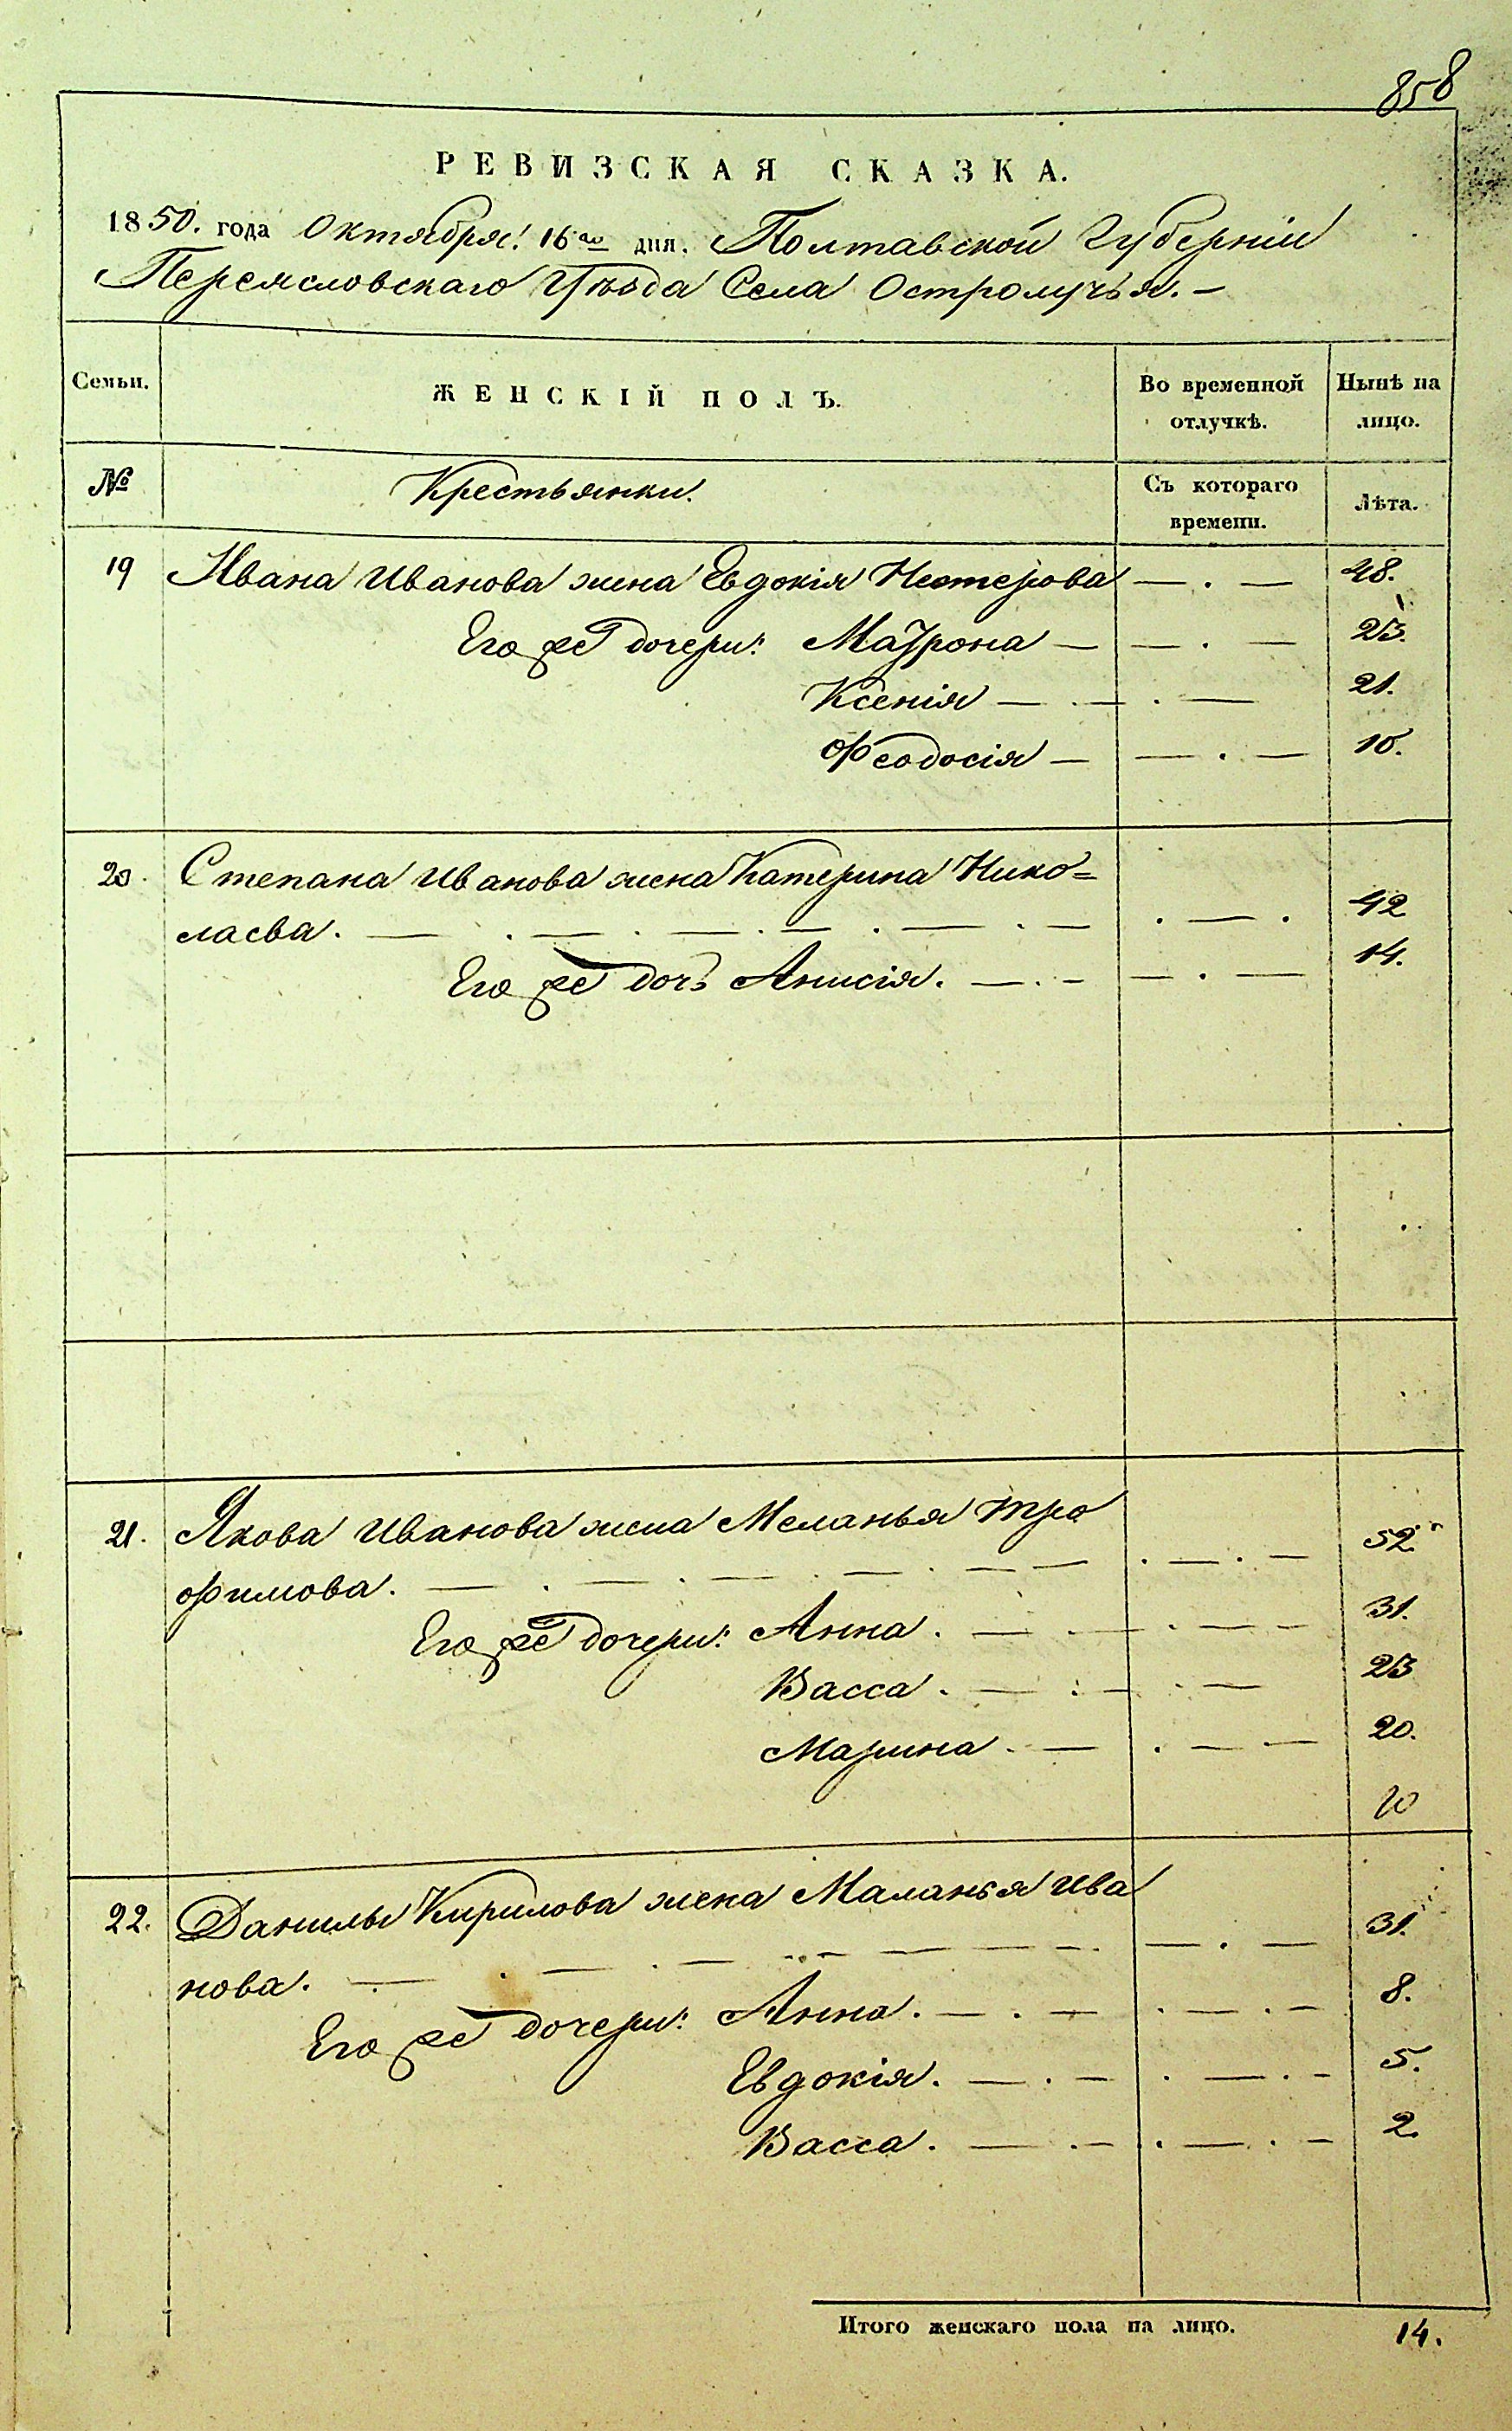 858
РЕВИЗСКАЯ СКАЗКА.
1850. года Октября 16го дня. Полтавской Губерніи
Переясловскаго Уѣзда Села Остролучья. —
Семьи. ЖЕНСКІЙ ПОЛЪ. Во временной отлучкѣ. Нынѣ на лицо.
№ Крестьянки. Съ котораго времени. Лѣта.
19 Ивана Иванова жена Евдокія Нестерова — . — 48.
Его же дочери: Матрона — — . — 23.
Ксенія — . — . — 21.
Феодосія — — . — 10.
20. Степана Иванова жена Катерина Нико=
лаева. — . — . — . — . — . — . — . 42
Его же дочь Анисія. — . - — . — 14.
21. Якова Иванова жена Меланья Тро
фимова. — . — . — . — . — — . — . — 52
Его же дочери: Анна. — . — . — - 31.
Васса. — . — . — 23
Марина. — . — . — 20.
10
22. Данилы Кирилова жена Маланья Ива
нова. — . — . — . — — — . — . — 31.
Его же дочери: Анна. — . — . — . - 8.
Евдокія. — . — . — . - 5.
Васса. — . - . — . - 2.
Итого женскаго пола на лицо. 14.